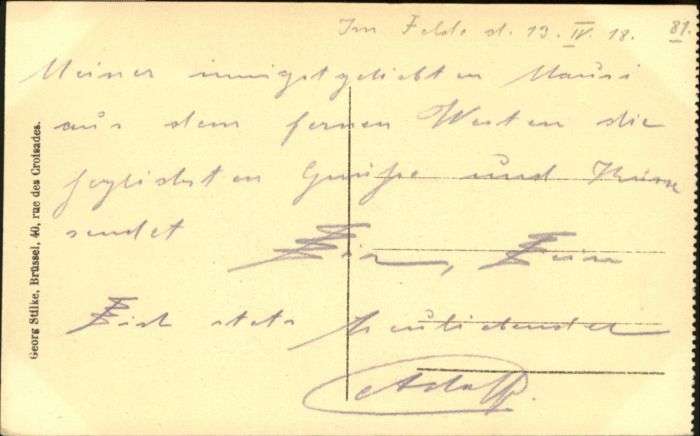 Im Felde d. 13. IV. 18. 81.
Meiner innigstgeliebten Mausi
aus dem fernen Westen die
herzlichsten Grüße und Küsse
sendet Dir, Dein
Dich stets
Adolf.
Georg Stilke, Brüssel, 40, rue des Croisades.